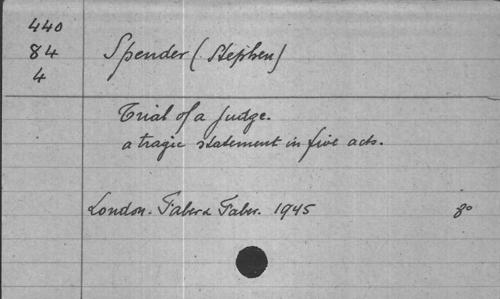 440
84
4
Spender (Stephen)
Trial of a Judge.
a tragic statement in five acts.
London. Faber & Faber. 1945 8º